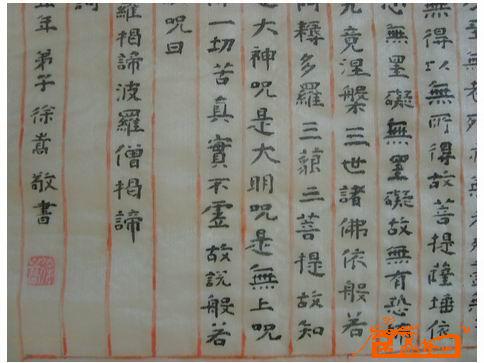 無老死亦無老死盡無
無得以無所得故菩提薩埵依
無罣礙無罣礙故無有恐怖
究竟涅槃三世諸佛依般若
阿耨多羅三藐三菩提故知
是大神咒是大明咒是無上咒
一切苦真實不虛故說般若
咒曰
羅揭諦波羅僧揭諦
年弟子徐嵩敬書